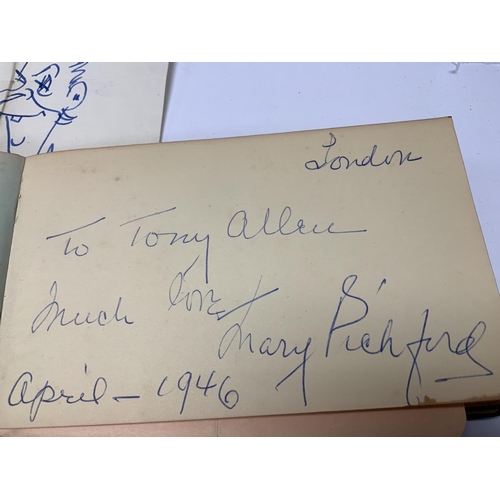 London
To Tony Allen
Much love
Mary Pickford
April - 1946